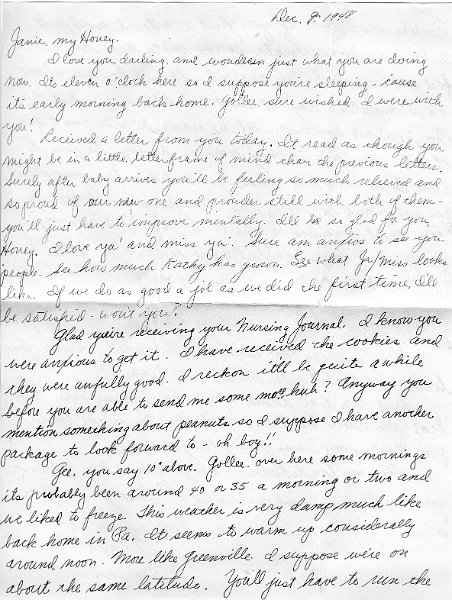 Dec. 9, 1948
Janie, my Honey.
I love you, darling, and wonderin just what you are doing
now. Its eleven o'clock here so I suppose you're sleeping - cause
its early morning back home. Gollee, sure wished I were with
you!
Received a letter from you today. It read as though you
might be in a little better frame of mind than the previous letters.
Surely after baby arrives you'll be feeling so much relieved and
so proud of our new one and prouder still with both of them -
you'll just have to improve mentally. I'll be so glad for you,
Honey. I love ya' and miss ya'. Sure am anxios to see you
people. See how much Kathy has grown. See what Jr/miss looks
like. If we do as good a job as we did the first time, I'll
be satisfied - won't you?
Glad you're receiving your Nursing Journal. I know you
were anxious to get it. I have received the cookies and
they were awfully good. I reckon it'll be quite a while
before you are able to send me some mo!! huh? Anyway you
mention something about peanuts so I suppose I have another
package to look forward to - oh boy!!
Gee, you say 10° above. Gollee - over here some mornings
its probably been around 40 or 35 a morning or two and
we liked to freeze. This weather is very damp much like
back home in Pa. It seems to warm up considerally
around noon. More like Greenville. I suppose we're on
about the same latitude. You'll just have to run the